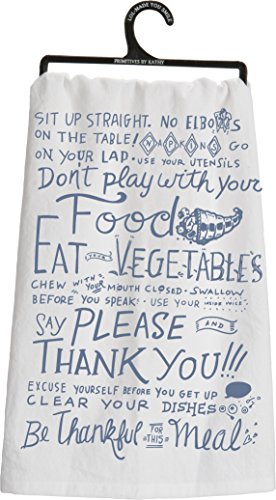 LOL-MADE YOU SMILE
PRIMITIVES BY KATHY
SIT UP STRAIGHT. NO ELBOWS
ON THE TABLE! NAPKINS GO
ON YOUR LAP. USE YOUR UTENSILS
Don't play with your
Food
EAT YOUR VEGETABLES
CHEW WITH YOUR MOUTH CLOSED. SWALLOW
BEFORE YOU SPEAK. USE YOUR INSIDE VOICE
SAY PLEASE AND
THANK YOU!!!
EXCUSE YOURSELF BEFORE YOU GET UP
CLEAR YOUR DISHES
Be Thankful FOR THIS Meal